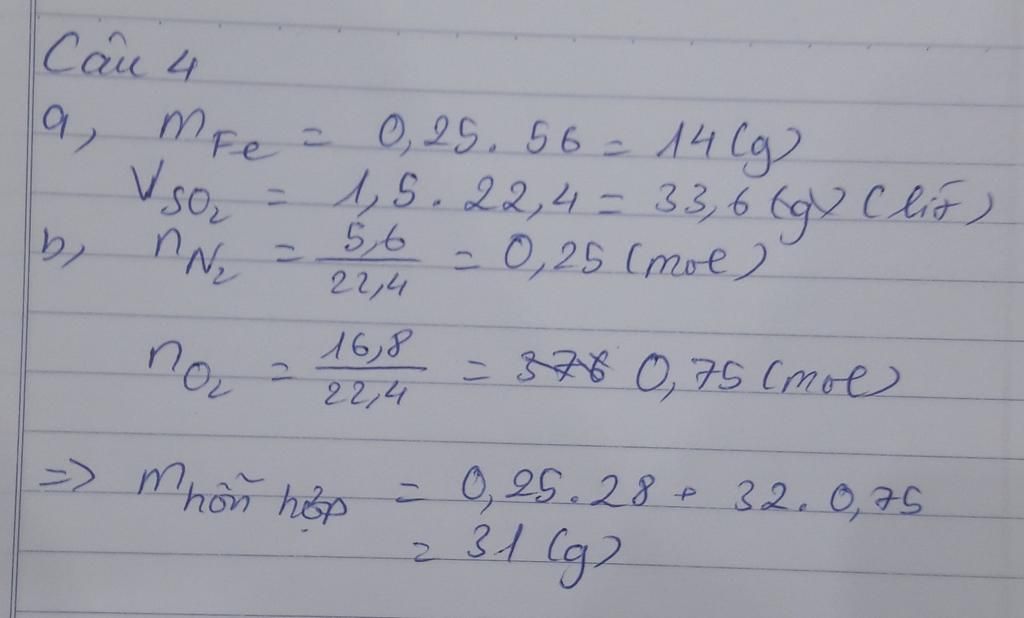 Câu 4
a, mFe = 0,25. 56 = 14 (g)
VSO2 = 1,5. 22,4 = 33,6 (g) (lít)
b, nN2 = 5,6/22,4 = 0,25 (mol)
nO2 = 16,8/22,4 = 376 0,75 (mol)
=> mhỗn hợp = 0,25.28 + 32. 0,75
= 31 (g)